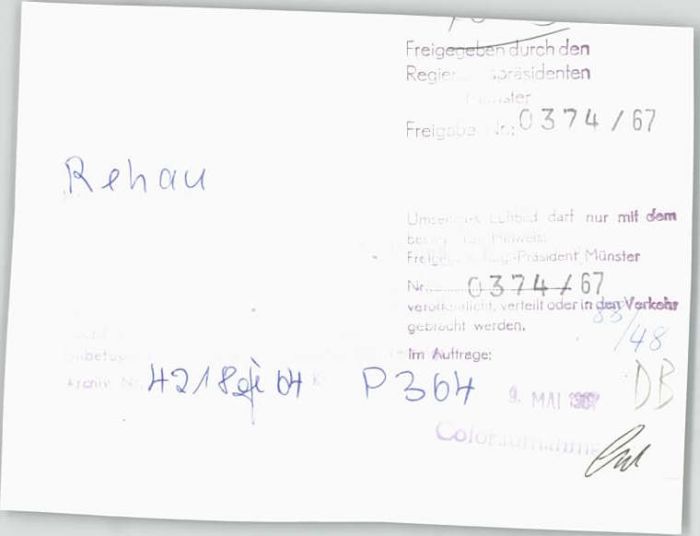 Freigegeben durch den
Regier präsidenten
Münster
Freigabe Nr.: 0374/67
Rehau
Umseitiges Luftbild darf nur mit dem
Hinweis:
Reg.-Präsident Münster
Nr. 0374/67
veröffentlicht, verteilt oder in den Verkehr
gebracht werden.
83/48
Im Auftrage:
Archiv Nr. 4218 64 P364
9. MAI 1967
DB
Coloraufnahme